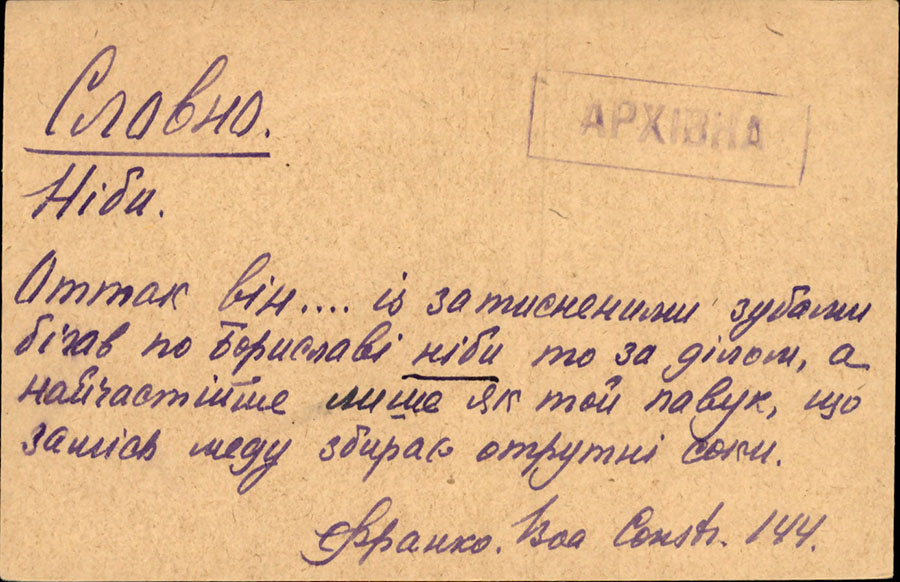 Словно.
АРХІВНА
Ніби.
Оттак він.... із затисненими зубами
бігав по Бориславі ніби то за ділом, а
найчастійше лише як той павук, що
замісь меду збирає отрутні соки.
Франко. Boa Constr. 144.